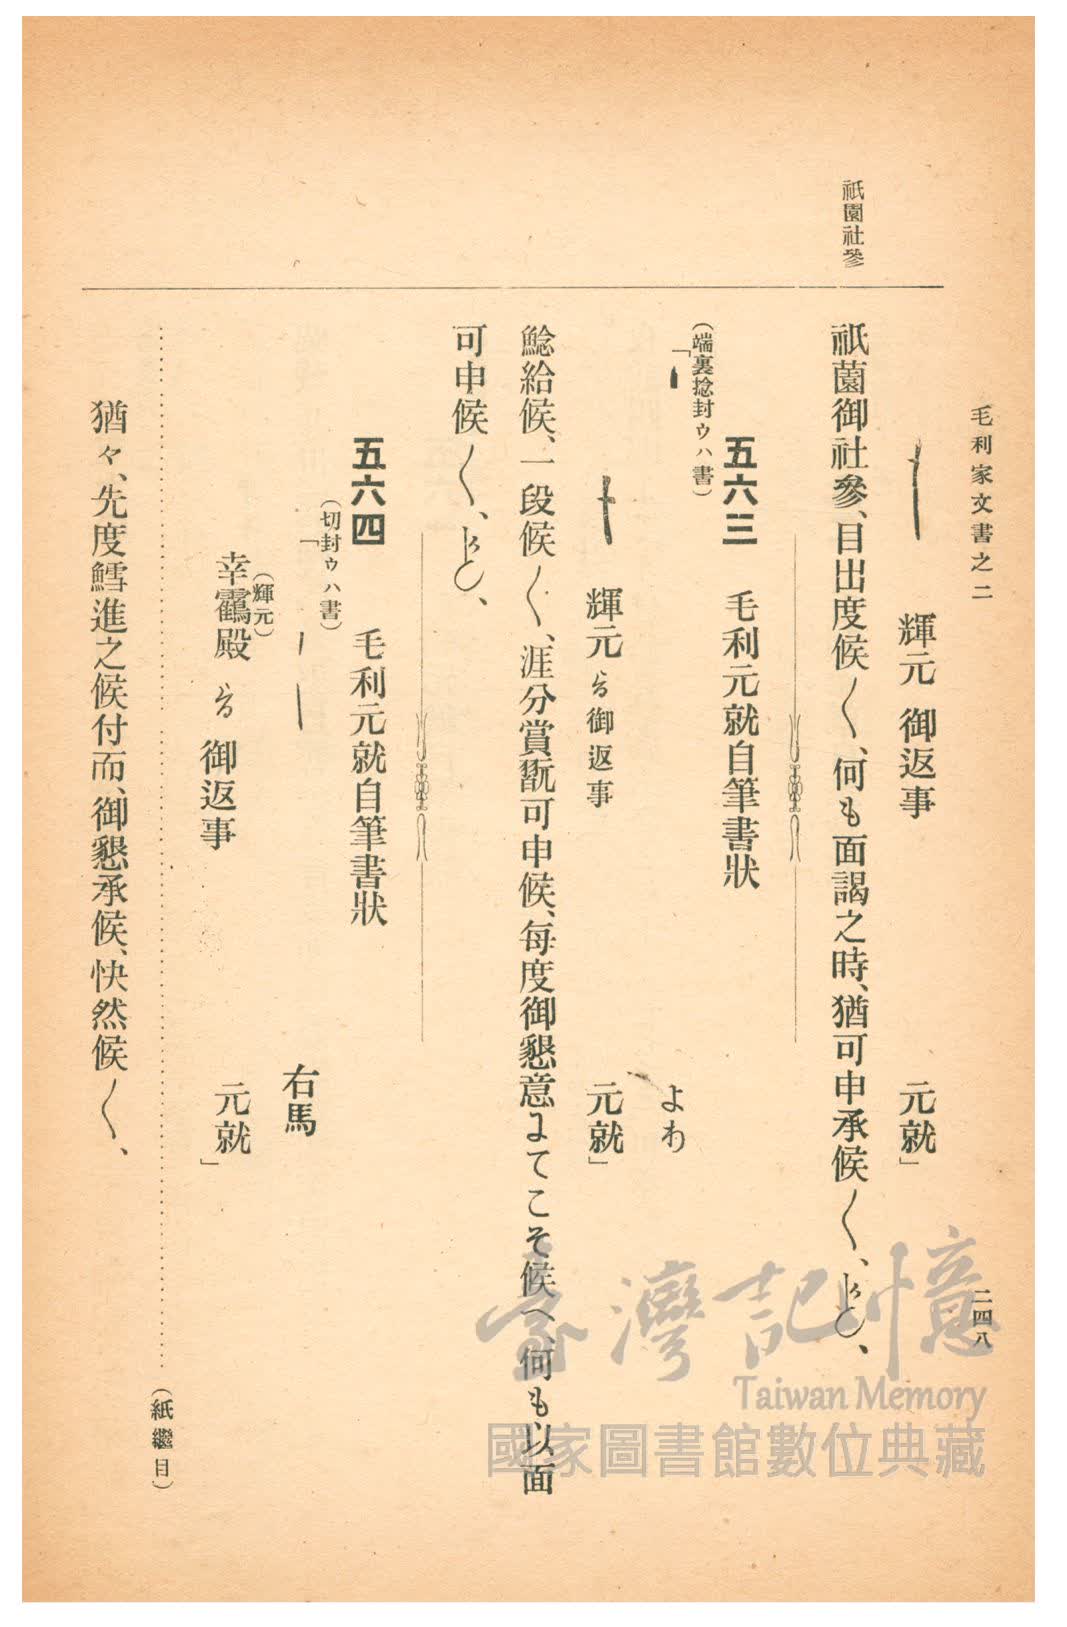 毛利家文書之二
二四八
輝元 御返事 元就」
祇園社參
祇薗御社參、目出度候〱、何も面謁之時、猶可申承候〱、
五六三 毛利元就自筆書狀
(端裏捻封ウハ書)
「
よわ
輝元 御返事 元就」
鯰給候、一段候〱、涯分賞翫可申候、每度御懇意にてこそ候へ、何も以面
可申候〱、
五六四 毛利元就自筆書狀
(切封ウハ書)
「
右馬
(輝元)
幸鶴殿 御返事 元就」
(紙繼目)
猶々、先度鱈進之候付而、御懇承候、怏然候〱、
臺灣記憶
Taiwan Memory
國家圖書館數位典藏